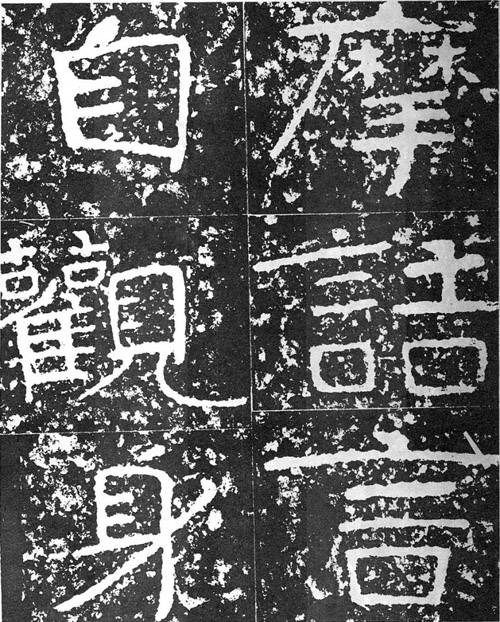 摩詰言
自觀身